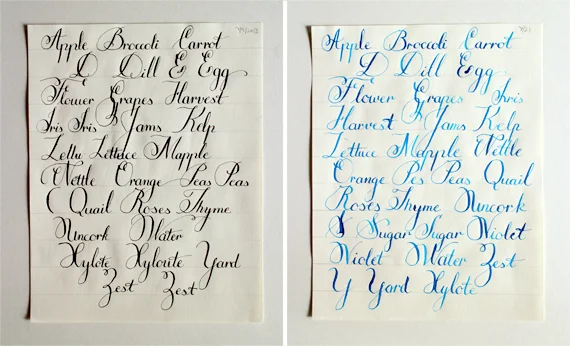 Apple Broccoli Carrot
D Dill & Egg
Flower Grapes Harvest
Iris Iris Yams Kelp
Lettu Lettuce Mapple
Nettle Orange Peas Peas
Quail Roses Thyme
Nincork Water
Xylote Xyloite Yard
Zest Zest
Apple Broccoli Carrot
D Dill & Egg
Flower Grapes Iris
Harvest Yams Kelp
Lettuce Mapple Nettle
Orange Pes Peas Quail
Roses Thyme Nincork
S Sugar Sugar Violet
Violet Water Zest
Y Yard Xylote